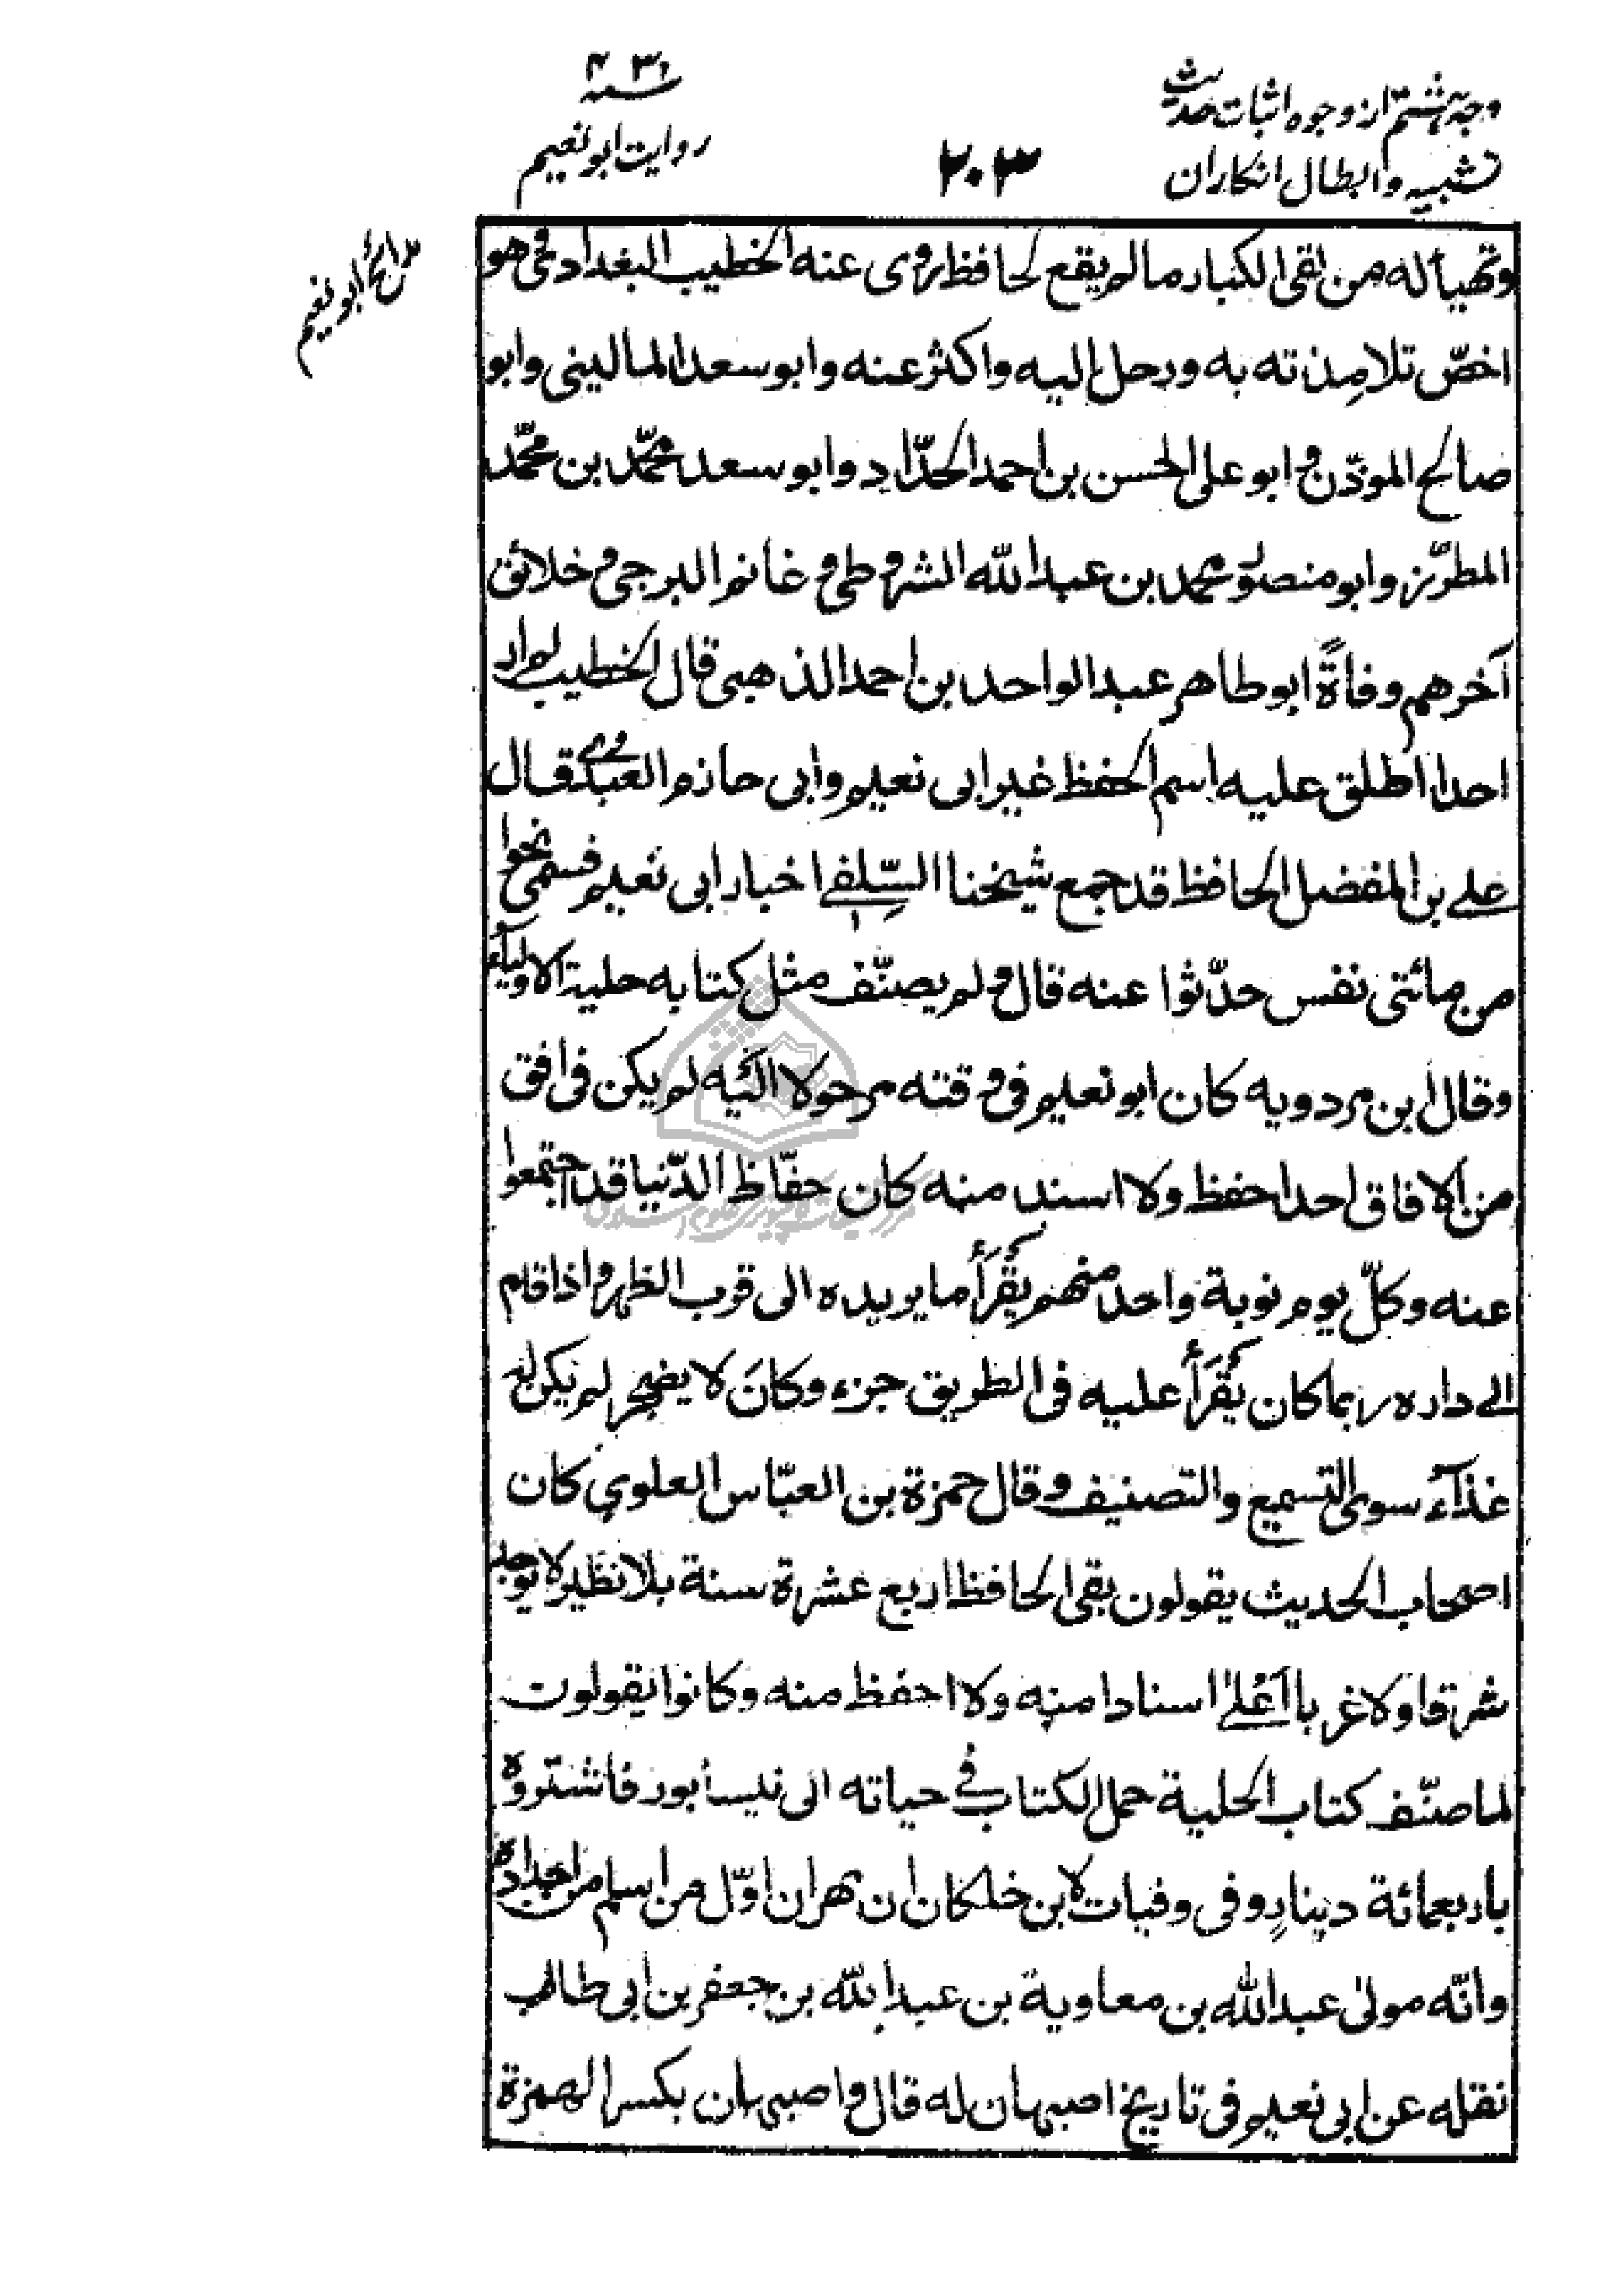 وجه هشتم از وجوه اثبات حدیث
تشبیه و ابطال انکاران
۲۰۳
سنه ۴۳۰
روایت ابو نعیم
مدائح ابو نعیم
وتهیأ له من لقی الکبار ما لم یقع لحافظ روی عنه الخطیب البغدادی وهو
اخصّ تلامِذته به ورحل الیه واکثر عنه وابو سعد المالینی وابو
صالح الموذّن وابو علی الحسن بن احمد الحدّاد وابو سعد محمّد بن محمّد
المطرّز وابو منصور محمد بن عبد اللّه الشروطی وغانم البرجی وخلائق
آخرهم وفاةً ابو طاهر عبد الواحد بن احمد الذهبی قال الخطیب لم ار
احدا اطلق علیه اسم الحفظ غیر ابی نعیم وابی حازم العبدوی قال
علی بن المفضل الحافظ قد جمع شیخنا السِّلفی اخبار ابی نعیم فسمی نحوا
من مائتی نفس حدّثوا عنه قال ولم یصنّف مثل کتابه حلیة الاولیآء
وقال ابن مردویه کان ابو نعیم فی وقته مرحولا الَیه لم یکن فی افق
من الافاق احد احفظ ولا اسند منه کان حفّاظ الدّنیا قد اجتمعوا
عنه وکلّ یوم نوبة واحد منهم یَقْرَأُ ما یریده الی قرب الظهر واذا قام
الی داره ربما کان یُقْرَأُ علیه فی الطریق جزء وکانَ لا یضجر لم یکن له
غذآء سوی التسمیع والتصنیف وقال حمزة بن العبّاس العلوی کان
اصحاب الحدیث یقولون بقی الحافظ اربع عشرة سنة بلا نظیر لا یوجد
شرقا ولا غربا اَعْلیٰ اسنادا منه ولا احفظ منه وکانوا یقولون
لما صنّف کتاب الحلیة حمل الکتاب فی حیاته الی نیسابور فاشتروه
باربعمائة دینارٍ وفی وفیات لابن خلکان ان مهران اوّل من اسلم من اجداده
وانّه مولیٰ عبد اللّه بن معاویة بن عبد اللّه بن جعفر بن ابی طالب
نقله عن ابی نعیم فی تاریخ اصبهان له قال واصبهان بکسر الهمزة